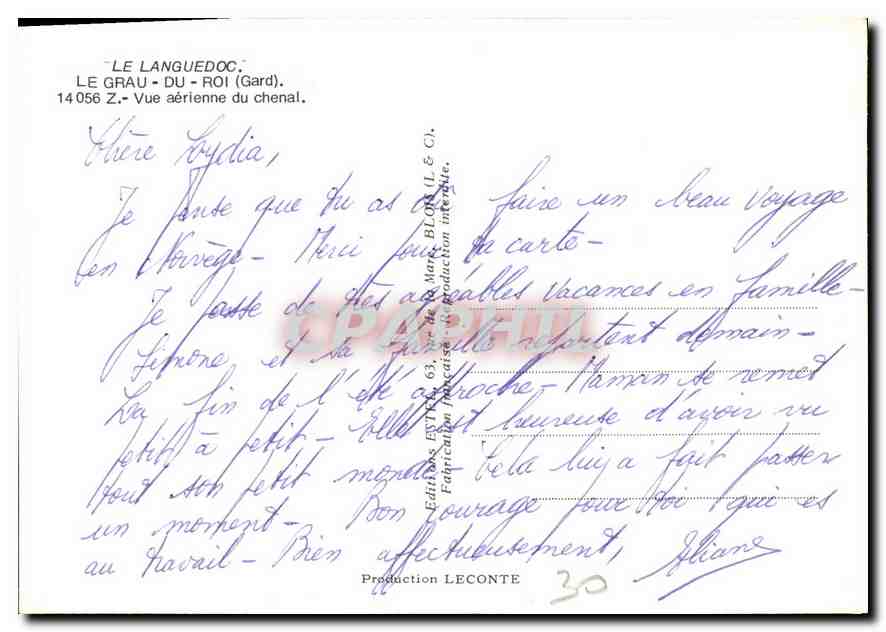 "LE LANGUEDOC."
LE GRAU - DU - ROI (Gard).
14 056 Z.- Vue aérienne du chenal.
Chère Lydia,
Je pense que tu as dû faire un beau voyage
en Norvège - Merci pour ta carte -
Je passe de très agréables vacances en famille -
Simone et sa famille repartent demain -
La fin de l'été approche - Maman se remet
petit à petit - Elle est heureuse d'avoir vu
tout son petit monde - Cela lui a fait passer
un moment - Bon courage pour toi qui es
au travail - Bien affectueusement, Eliane
Editions ESTEL, 63, rue de la Mare, BLOIS (L & C).
Fabrication française - Reproduction interdite.
CPAPHIL
Production LECONTE
30